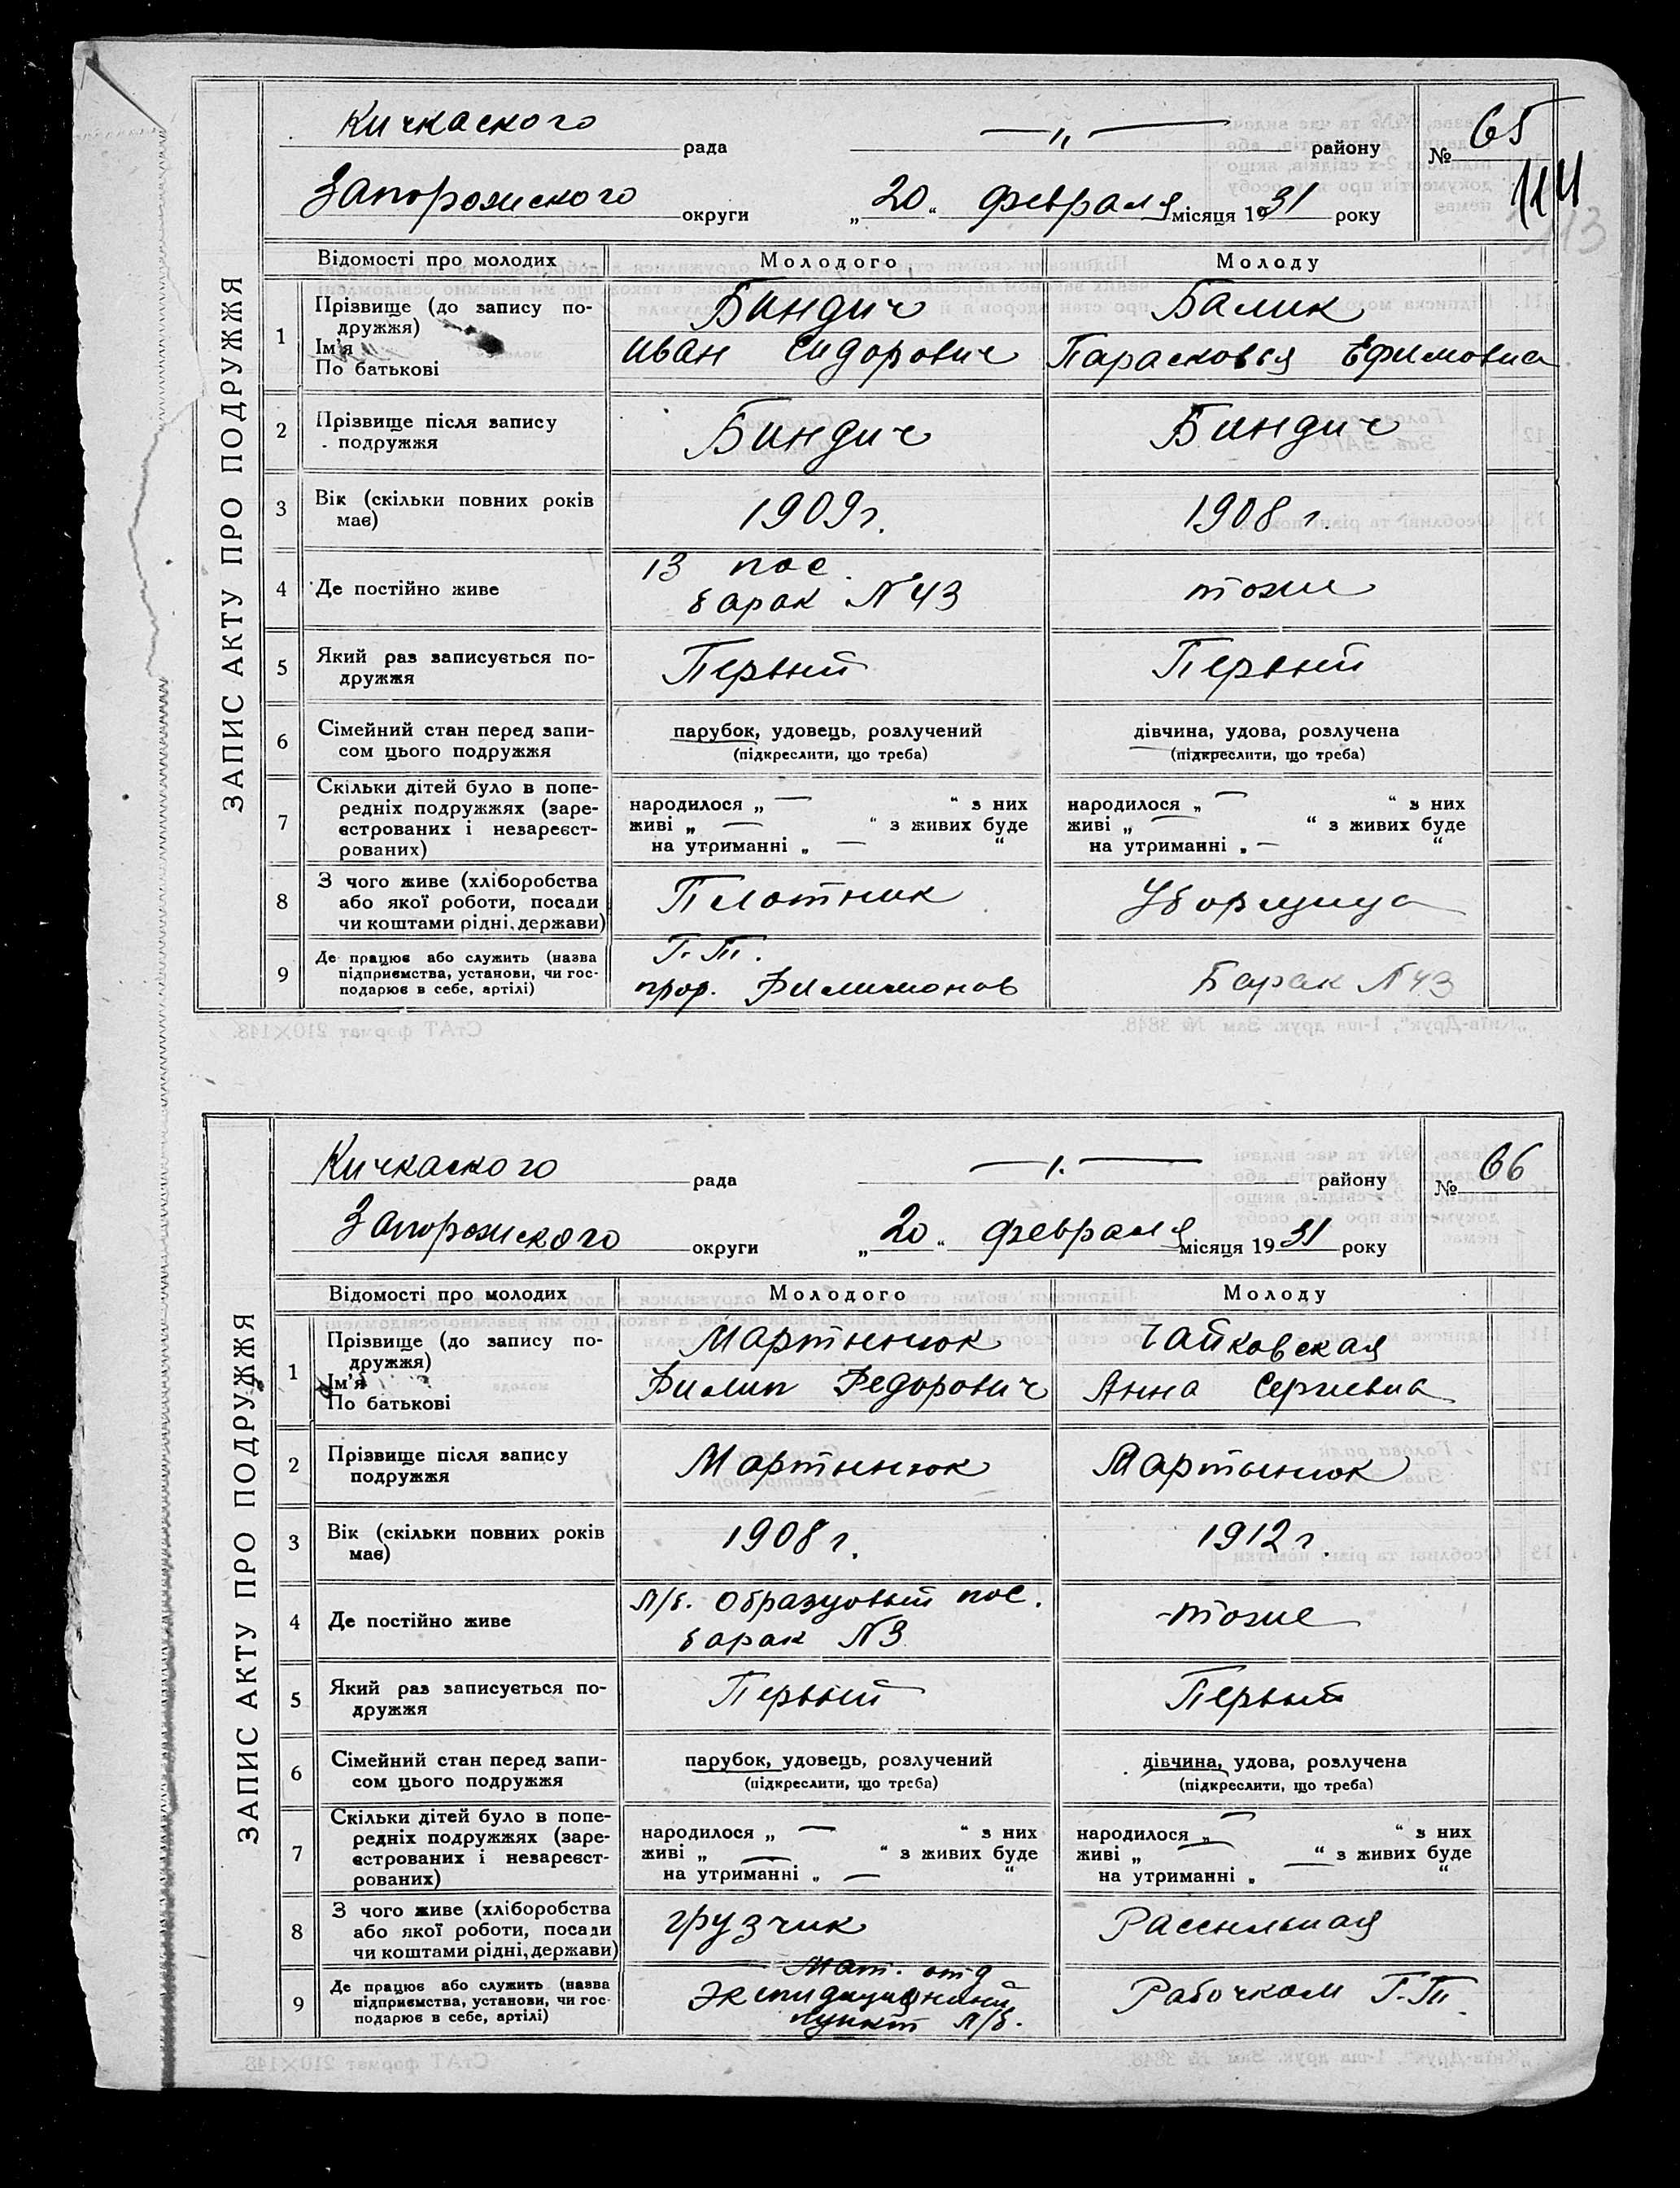 ЗАПИС АКТУ ПРО ПОДРУЖЖЯ
Кичкаского рада —„— району № 65
114
113
Запорожского округи „20“ февраля місяця 1931 року
Відомості про молодих Молодого Молоду
1 Прізвище (до запису по-
дружжя) Биндич Балик
Ім'я
По батькові Иван Сидорович Парасковья Ефимовна
2 Прізвище після запису
подружжя Биндич Биндич
3 Вік (скільки повних років
має) 1909г. 1908г.
4 Де постійно живе 13 пос. тоже
барак N43
5 Який раз записується по-
дружжя Первый Первый
6 Сімейний стан перед запи-
сом цього подружжя парубок, удовець, розлучений дівчина, удова, розлучена
(підкреслити, що треба) (підкреслити, що треба)
7 Скільки дітей було в попе-
редніх подружжях (заре-
єстрованих і незареєст-
рованих) народилося „ — “ з них народилося „ — “ з них
живі „ — “ з живих буде живі „ — “ з живих буде
на утриманні „ — “ на утриманні „ — “
8 З чого живе (хліборобства
або якої роботи, посади
чи коштами рідні, держави) Плотник Уборщица
9 Де працює або служить (назва
підприємства, установи, чи гос-
подарює в себе, артілі) Г.Т.
прор. Филимонов Барак N43
СтАТ формат 210×148.
„Київ-Друк“, 1-ша друк. Зам № 3848.
ЗАПИС АКТУ ПРО ПОДРУЖЖЯ
Кичкаского рада —„— району № 66
Запорожского округи „20“ февраля місяця 1931 року
Відомості про молодих Молодого Молоду
1 Прізвище (до запису по-
дружжя) Мартынюк Чайковская
Ім'я
По батькові Филип Федорович Анна Сергиевна
2 Прізвище після запису
подружжя Мартынюк Мартынюк
3 Вік (скільки повних років
має) 1908г. 1912г.
4 Де постійно живе Л/б. Образцовый пос. тоже
барак N3
5 Який раз записується по-
дружжя Первый Первый
6 Сімейний стан перед запи-
сом цього подружжя парубок, удовець, розлучений дівчина, удова, розлучена
(підкреслити, що треба) (підкреслити, що треба)
7 Скільки дітей було в попе-
редніх подружжях (заре-
єстрованих і незареєст-
рованих) народилося „ — “ з них народилося „ — “ з них
живі „ — “ з живих буде живі „ — “ з живих буде
на утриманні „ — “ на утриманні „ “
8 З чого живе (хліборобства
або якої роботи, посади
чи коштами рідні, держави) грузчик Рассыльная
9 Де працює або служить (назва
підприємства, установи, чи гос-
подарює в себе, артілі) Мат. отд
пункт Л/б. Рабочком Г.Т.
СтАТ формат 210×148
„Київ-Друк“, 1-ша друк. Зам № 3848.